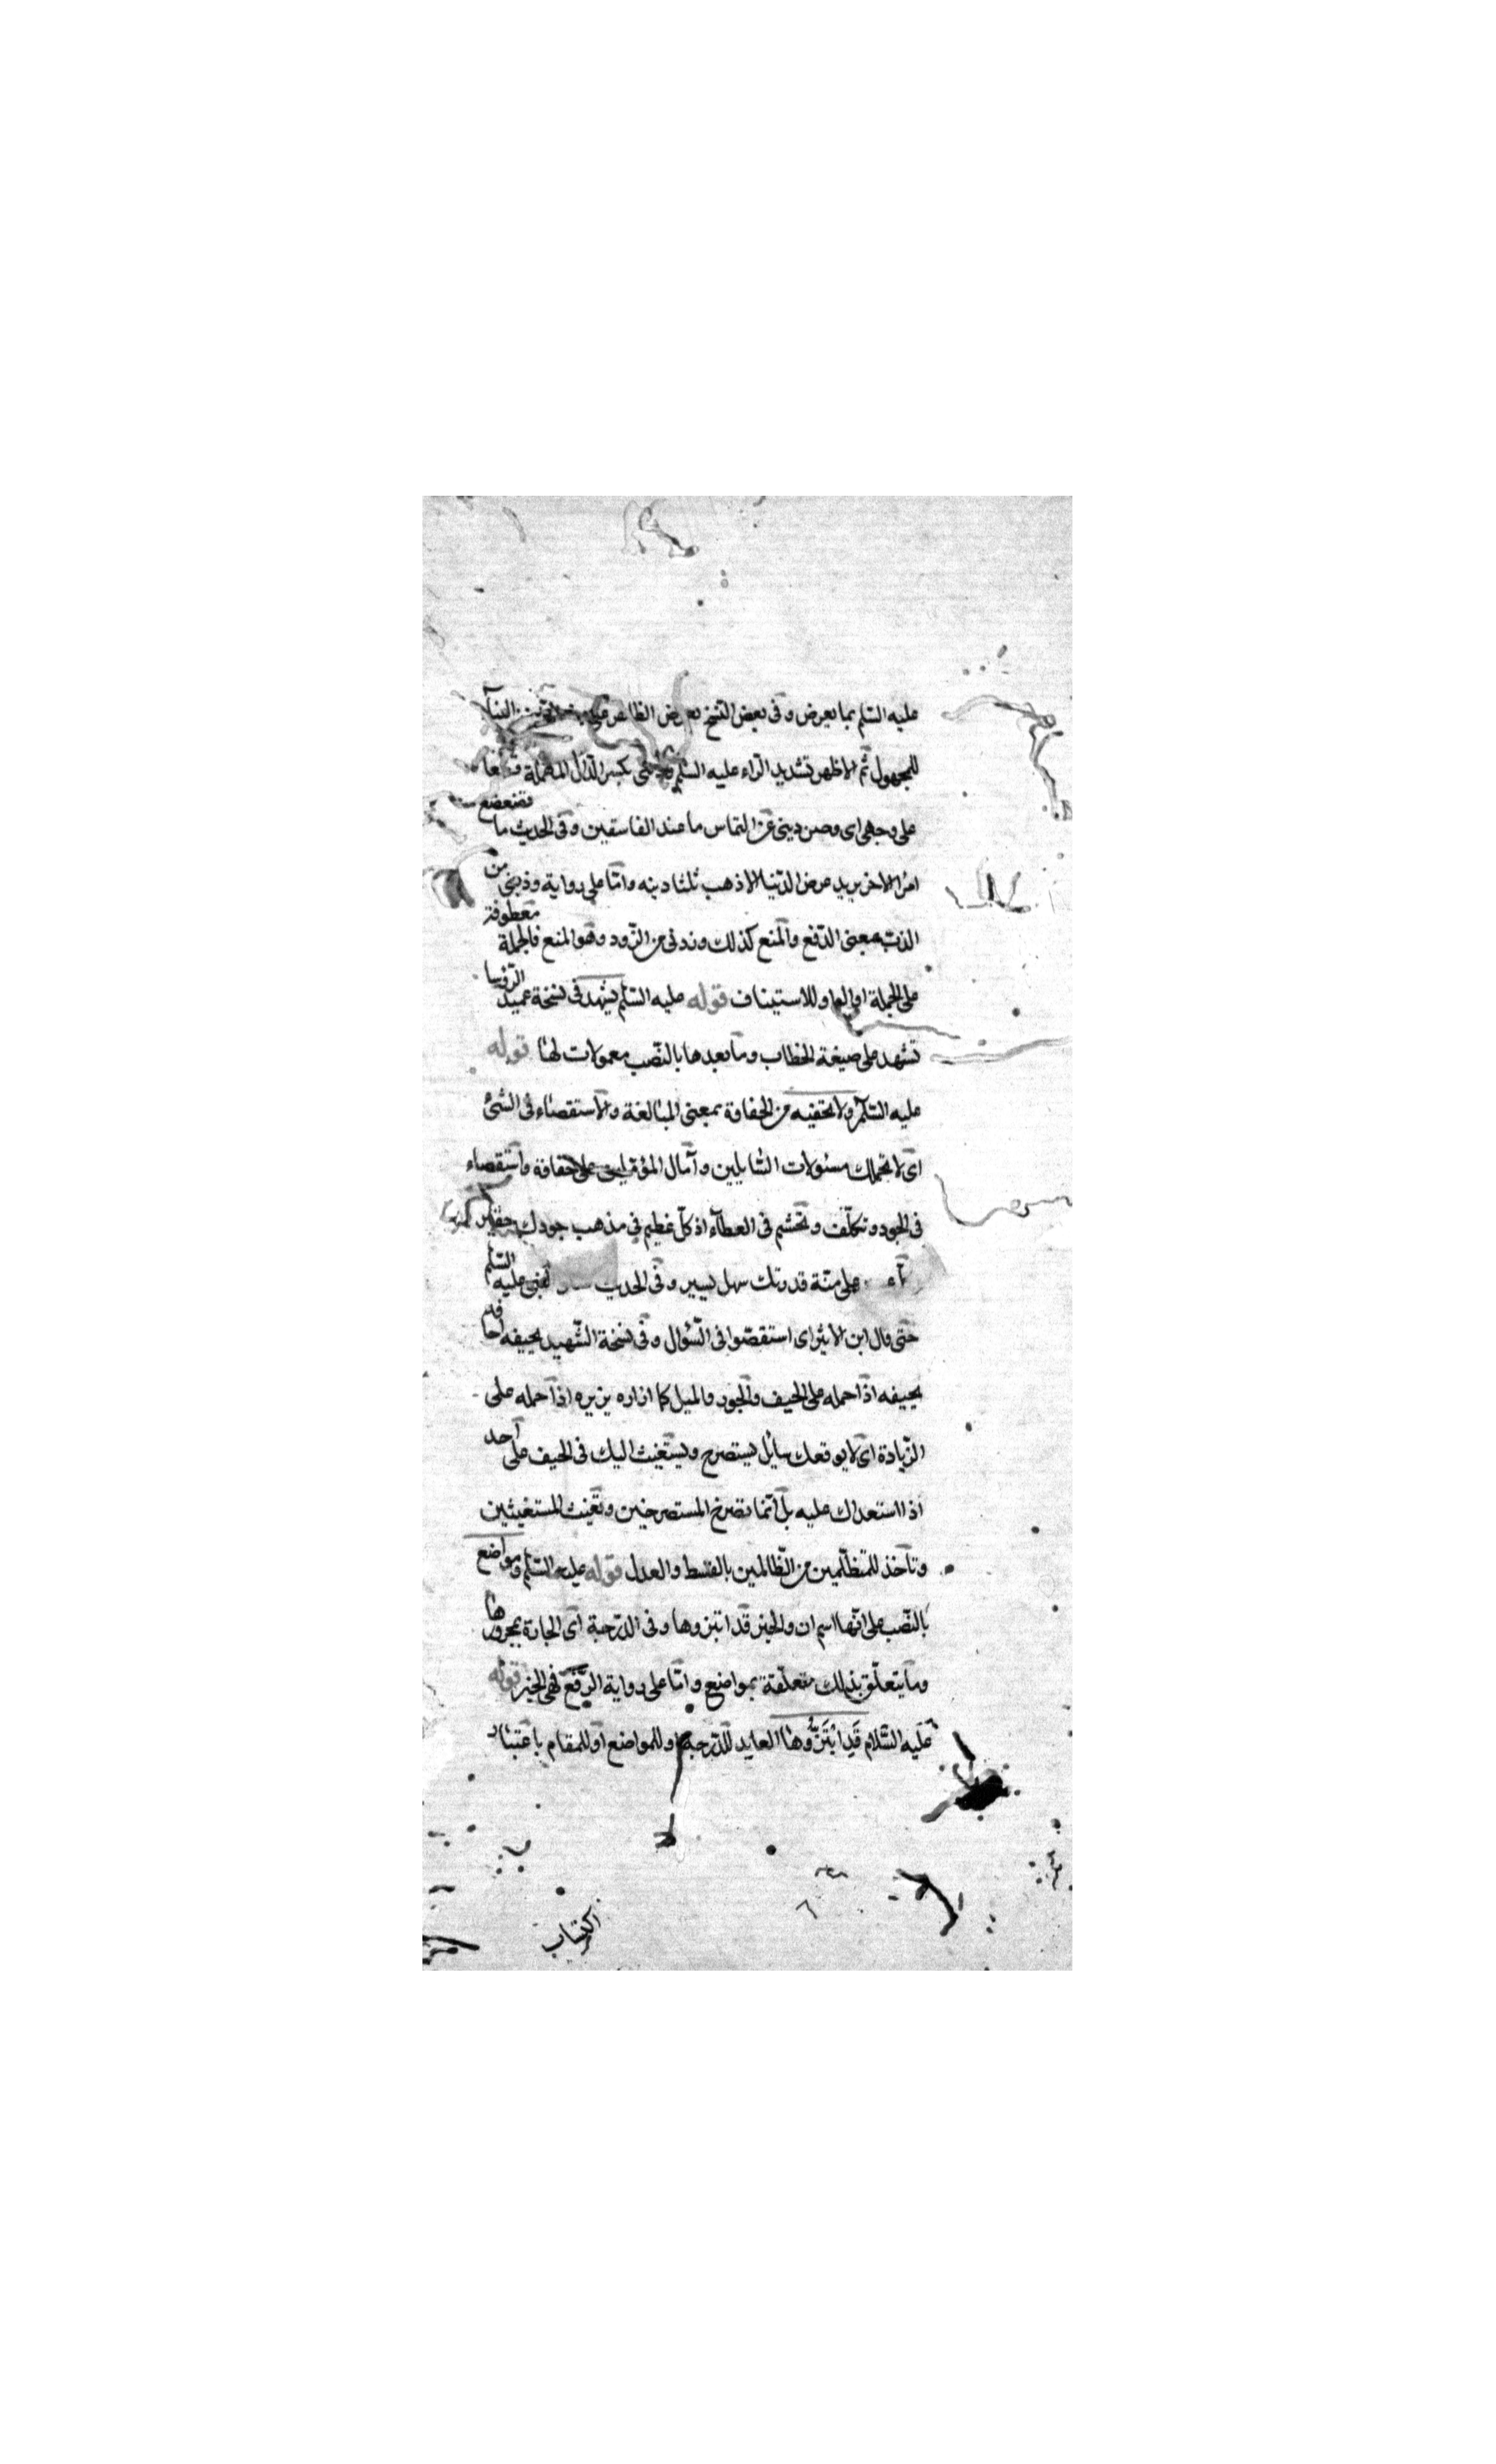 عليه السّلم بما يعرض وفى بعض النّسخ يعرض الظاهر البنآ
للمجهول ثم الاظهر تشديد الرّاء عليه السّلم بكسر الدّال المهملة
على وجهى اى وصن دينى عن التماس ما عند الفاسقين وفى الحديث ما تضعضع
امرا لاخر يريد عرض الدّنيا الا ذهب ثلثا دينه وامّا على رواية وذبنى من
الذبّ بمعنى الدّفع والمنع كذلك وذدنى من الذّود وهو المنع فالجملة معطوفة
على الجملة او الواو للاستيناف قوله عليه السّلم تشهد فى نسخة عميد الرّؤسا
تشهد على صيغة الخطاب وما بعدها بالنّصب معمولات لها قوله
عليه السّلم ولا يحفيه من الحفاوة بمعنى المبالغة والاستقصاء فى الشّئ
اى لا تحملك مسئولات السّايلين وآمال المؤمّلين على حفاوة واستقصاء
فى الجود وتكلّف وتجشّم فى العطآء اذ كلّ عظيم فى مذهب جودك حقير
على منّة قدرتك سهل يسير وفى الحديث النبى عليه السّلم
حتى قال ابن الاثير اى استقصّوا فى السّؤال وفى نسخة الشّهيد يحيفه احافه
يحيفه اذا حمله على الحيف والجور والميل كما ازاره يزيره اذا حمله على
الزّيادة اى لا يوقعك سايل يستصرخ ويستغيث اليك فى الحيف على احد
اذا استعداك عليه بل انّما تصرخ المستصرخين وتغيث المستغيثين
وتأخذ للمتظلّمين من الظّالمين بالقسط والعدل قوله عليه السّلم ومواضع
بالنّصب على انّها اسم ان والخبر قد ابتزوها وفى الدّرجة اى الجارة بمجرورها
وما يتعلّق بذلك متعلّقة بمواضع وامّا على رواية الرّفع فهى الخبر قوله
عليه السّلام قَدِ ابْتَزُّوها العايد للدّرجة او للمواضع او للمقام باعتبار
الكتاب